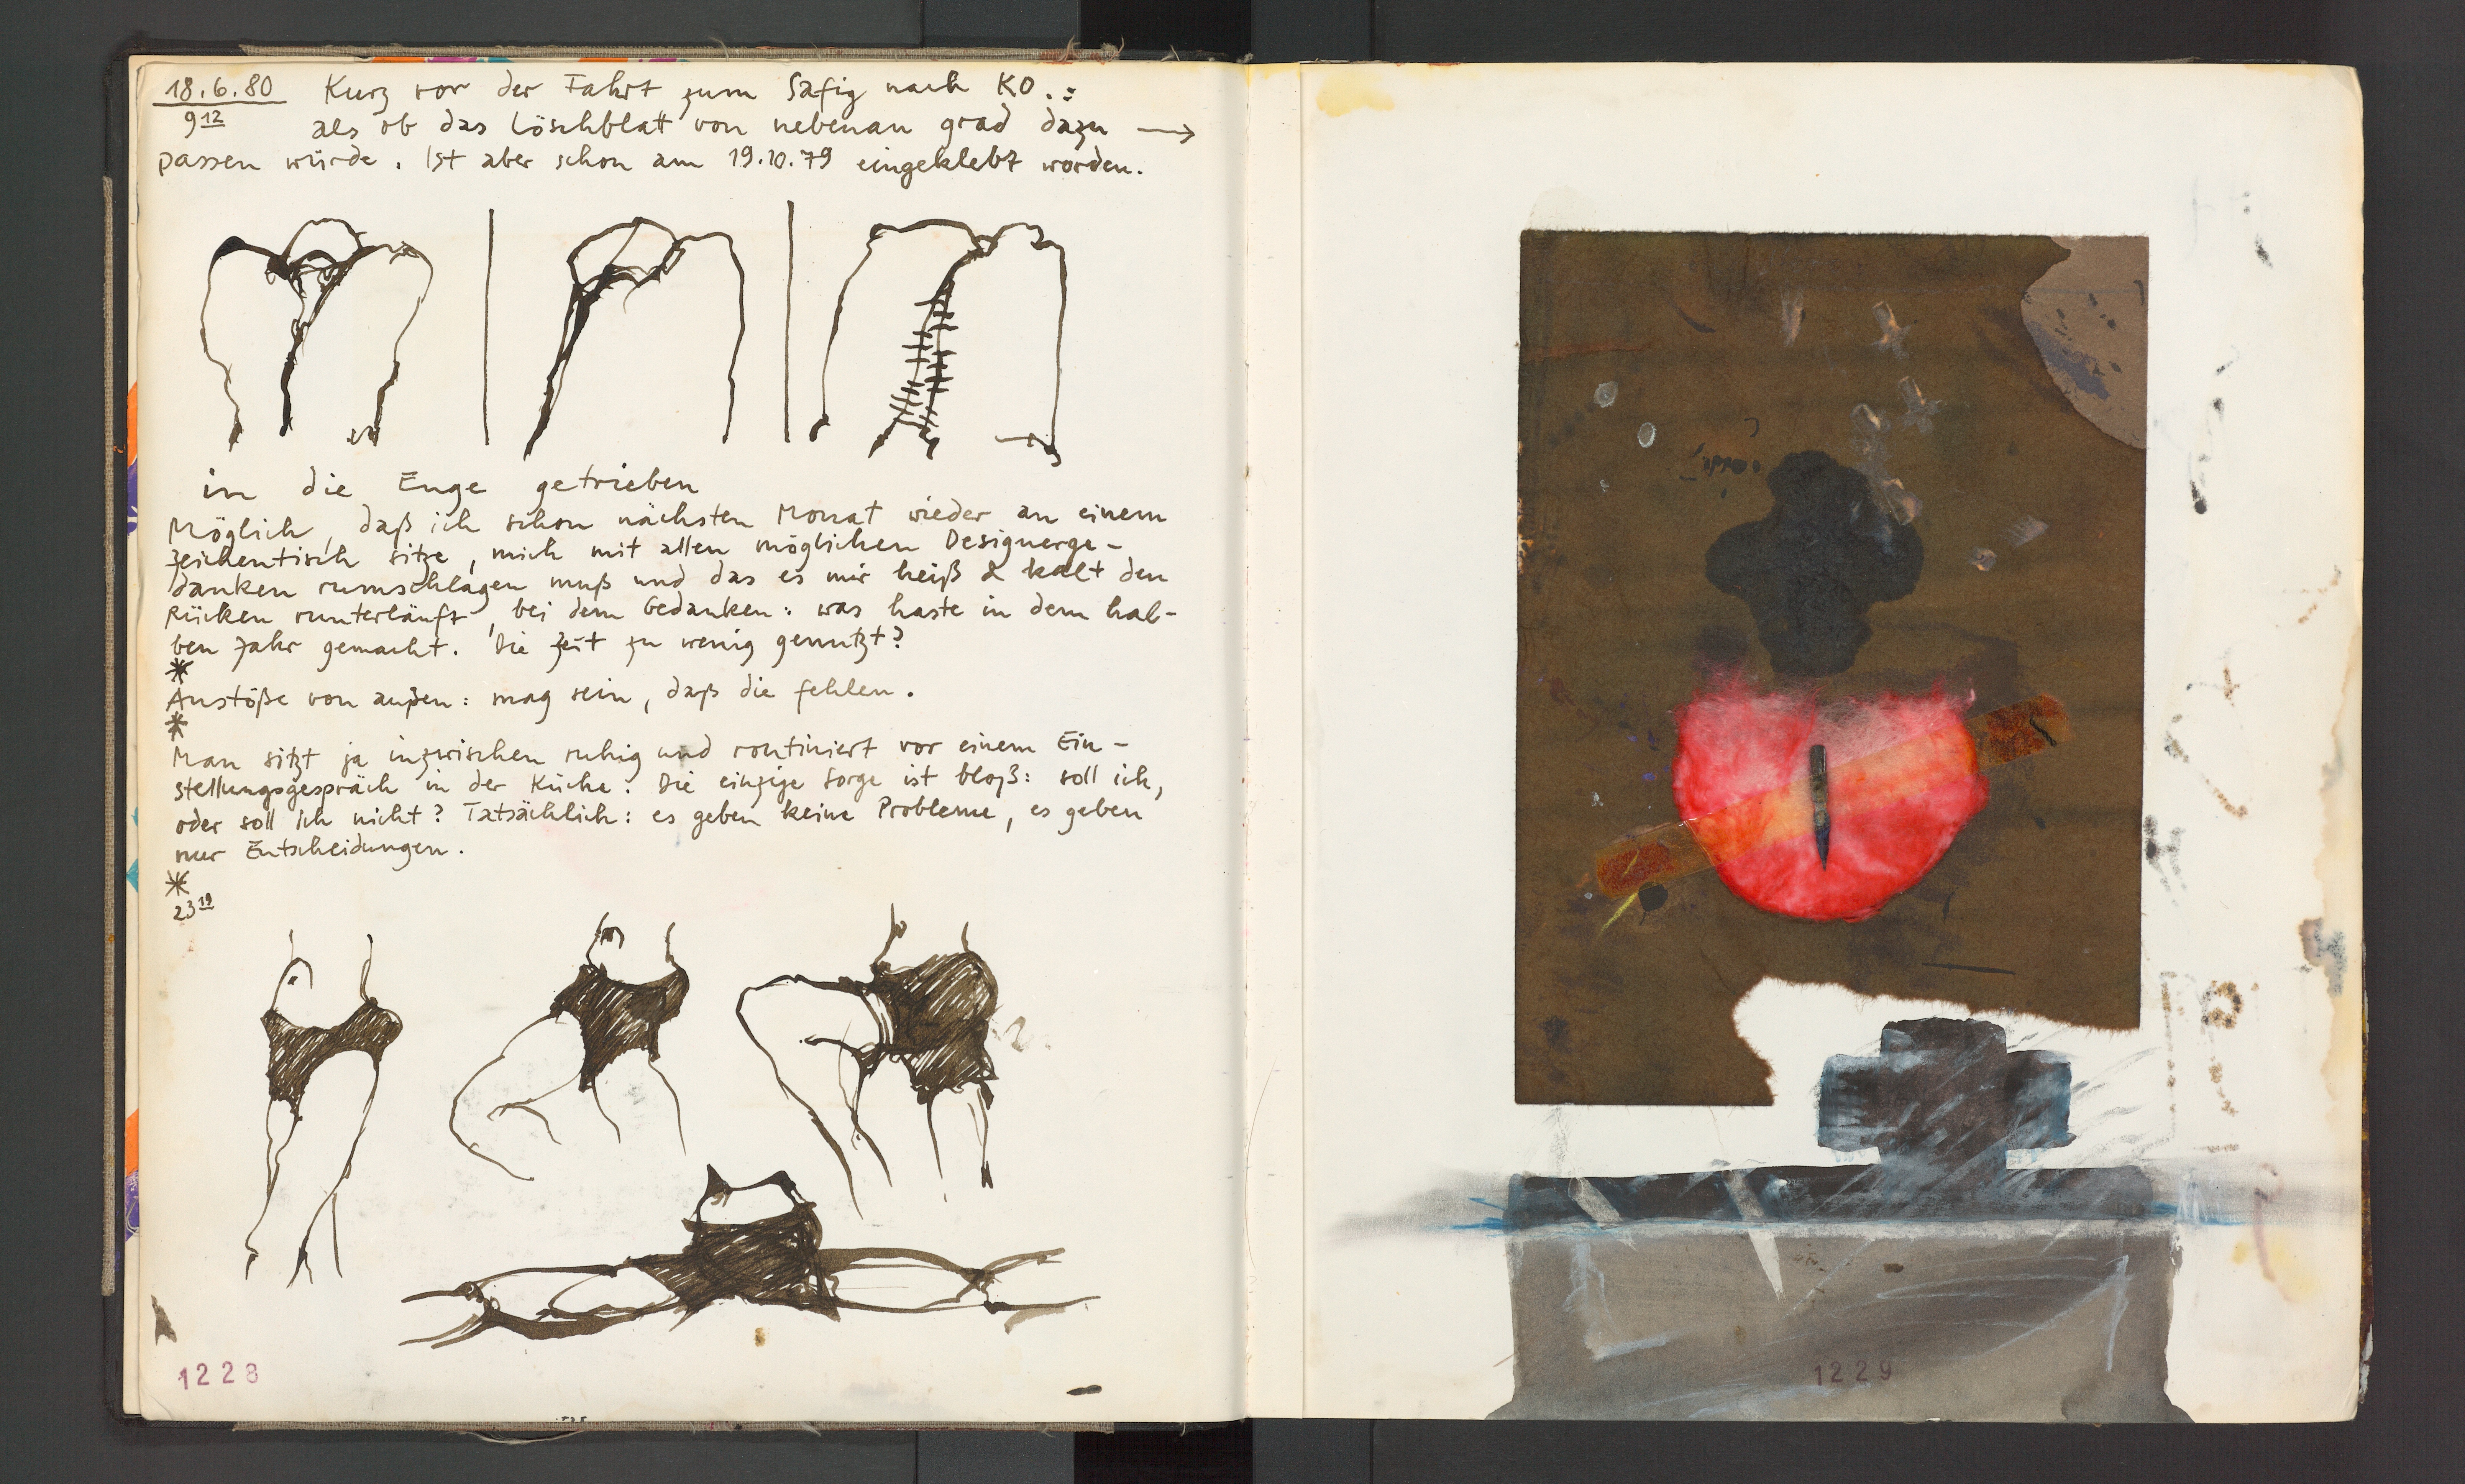 18.6.80 Kurz vor der Fahrt zum Safig nach KO.:
9 12 als ob das Löschblatt von nebenan grad dazu →
passen würde. Ist aber schon am 19.10.79 eingeklebt worden.
in die Enge getrieben
Möglich, daß ich schon nächsten Monat wieder an einem
Zeichentisch sitze, mich mit allen möglichen Designerge-
danken rumschlagen muß und das es mir heiß & kalt den
Rücken runterläuft, bei dem Gedanken: was haste in dem hal-
ben Jahr gemacht. Die Zeit zu wenig genutzt?
*
Anstöße von außen: mag sein, daß die fehlen.
*
Man sitzt ja inzwischen ruhig und routiniert vor einem Ein-
stellungsgespräch in der Küche. Die einzige Sorge ist bloß: soll ich,
oder soll ich nicht? Tatsächlich: es geben keine Probleme, es geben
nur Entscheidungen.
*
23 19
1228
1229